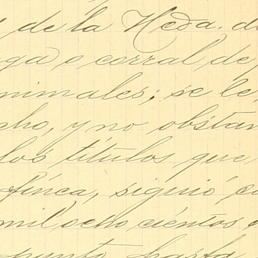 de la Hcda. de
ga o corral de
nimales; se le
cho, y no obstan
los títulos que
finca, siguió, co
mil ocho cientos
punto hasta